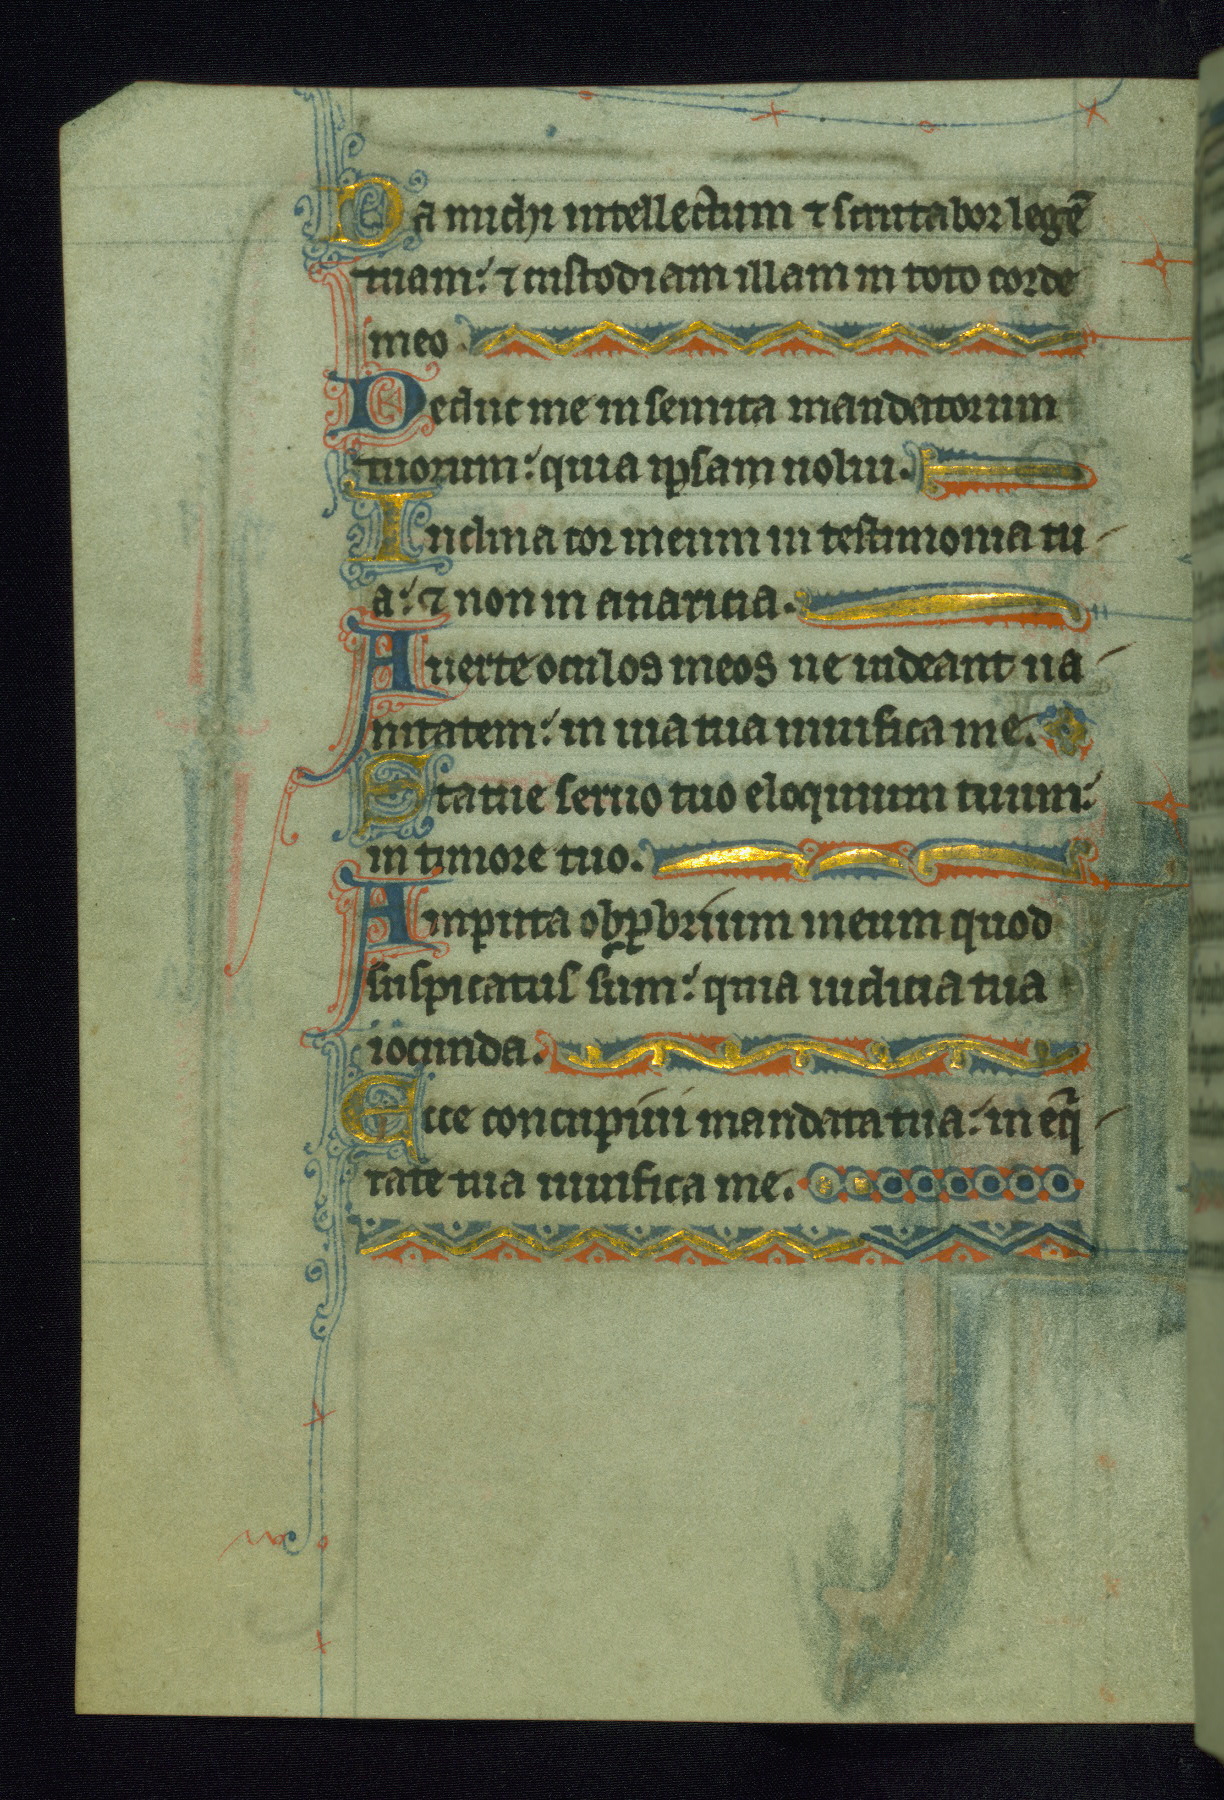 Da michi intellectum ⁊ scrutabor legē
tuam: ⁊ custodiam illam in toto corde
meo
Deduc me in semita mandatorum
tuorum: quia ip̄sam uolui.
Inclina cor meum in testimonia tu
a: ⁊ non in auaricia.
Auerte oculos meos ne uideant ua
nitatem: in uia tua uiuifica me.
Statue seruo tuo eloquium tuum:
in timore tuo.
Amputa obꝓbrium meum quod
suspicatus sum: quia iudicia tua
iocunda.
Ecce concupiui mandata tua: in eq̄
tate tua uiuifica me.